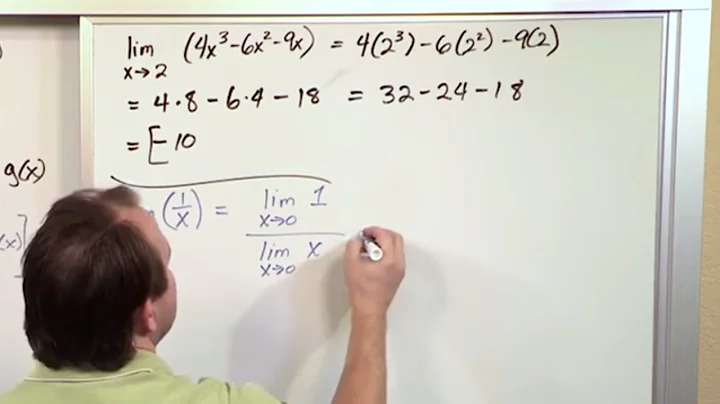 lim (4x³-6x²-9x) = 4(2³)-6(2²)-9(2)
x→2
= 4·8-6·4-18 = 32-24-18
= [-10
g(x)
(1/x) = lim 1
x→0
lim x
x→0
x)]